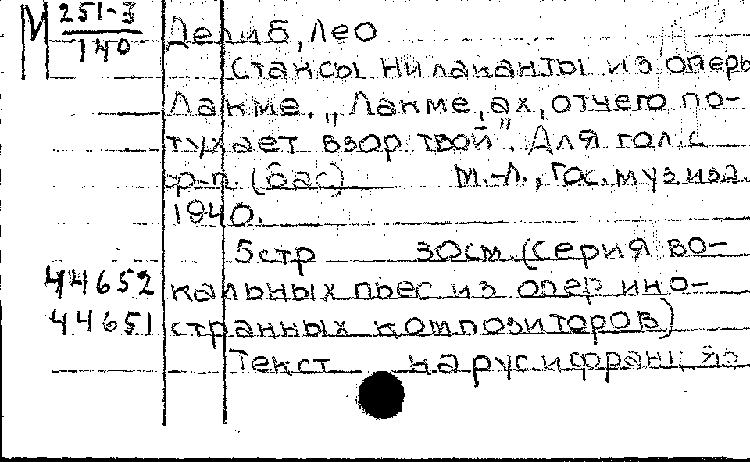 М 251-3
140
Делиб, Лео
Стансы Нилаканты из оперы
Лакме. „Лакме, ах, отчего по-
тухает взор твой". Для гол. с
ф-п. (бас) М.-Л., Гос. муз изд.
1940.
5 стр 30 см. (Серия во-
44652 кальных пьес из опер ино-
44651 странных композиторов)
Текст на рус и франц яз